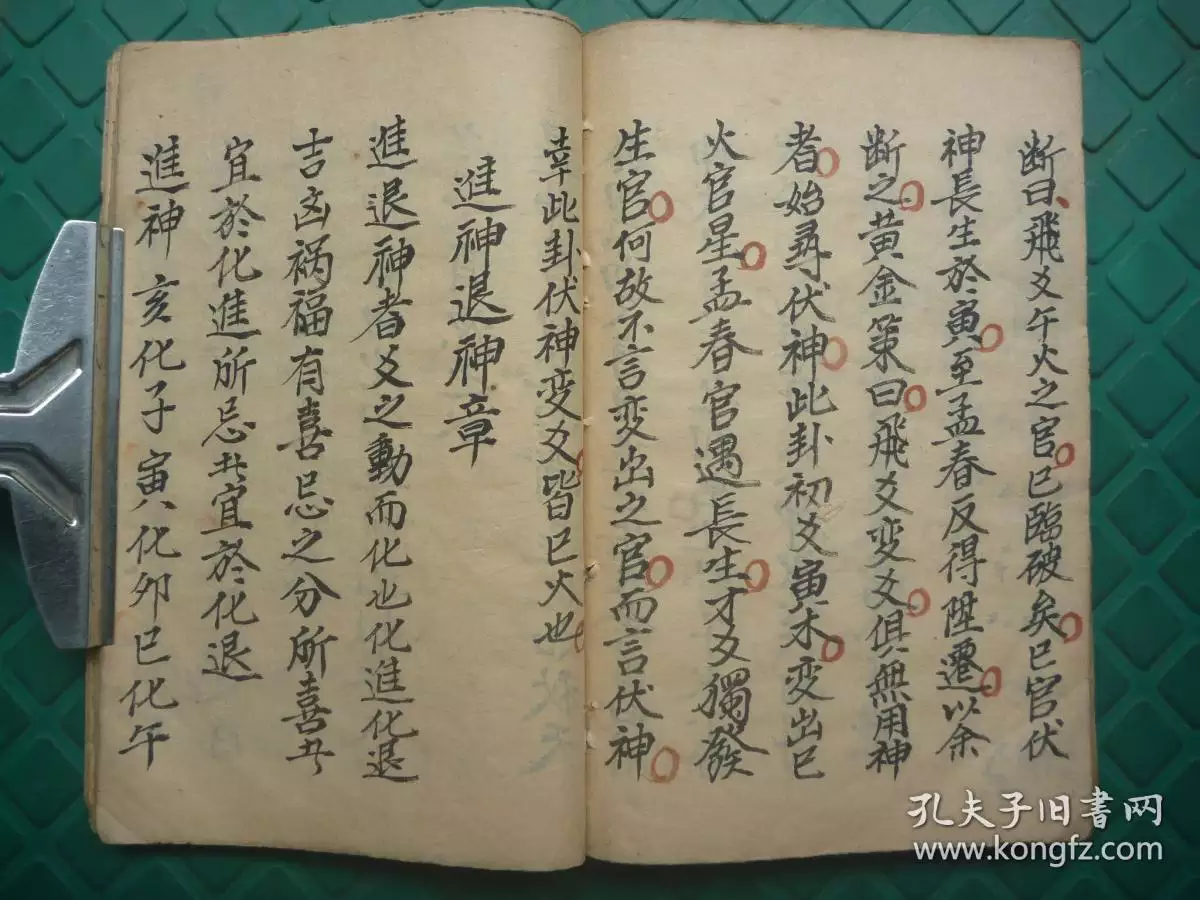 断曰飛爻午火之官已臨破矣巳官伏
神長生於寅至孟春反得陞遷以余
断之黄金策曰飛爻变爻俱無用神
者始尋伏神此卦初爻寅木变出巳
火官星孟春官遇長生才爻獨發
生官何故不言变出之官而言伏神
幸此卦伏神变爻皆巳火也
進神退神章
進退神者爻之動而化也化進化退
吉凶祸福有喜忌之分所喜者
宜於化進所忌者宜於化退
進神亥化子寅化卯巳化午
孔夫子旧书网
www.kongfz.com